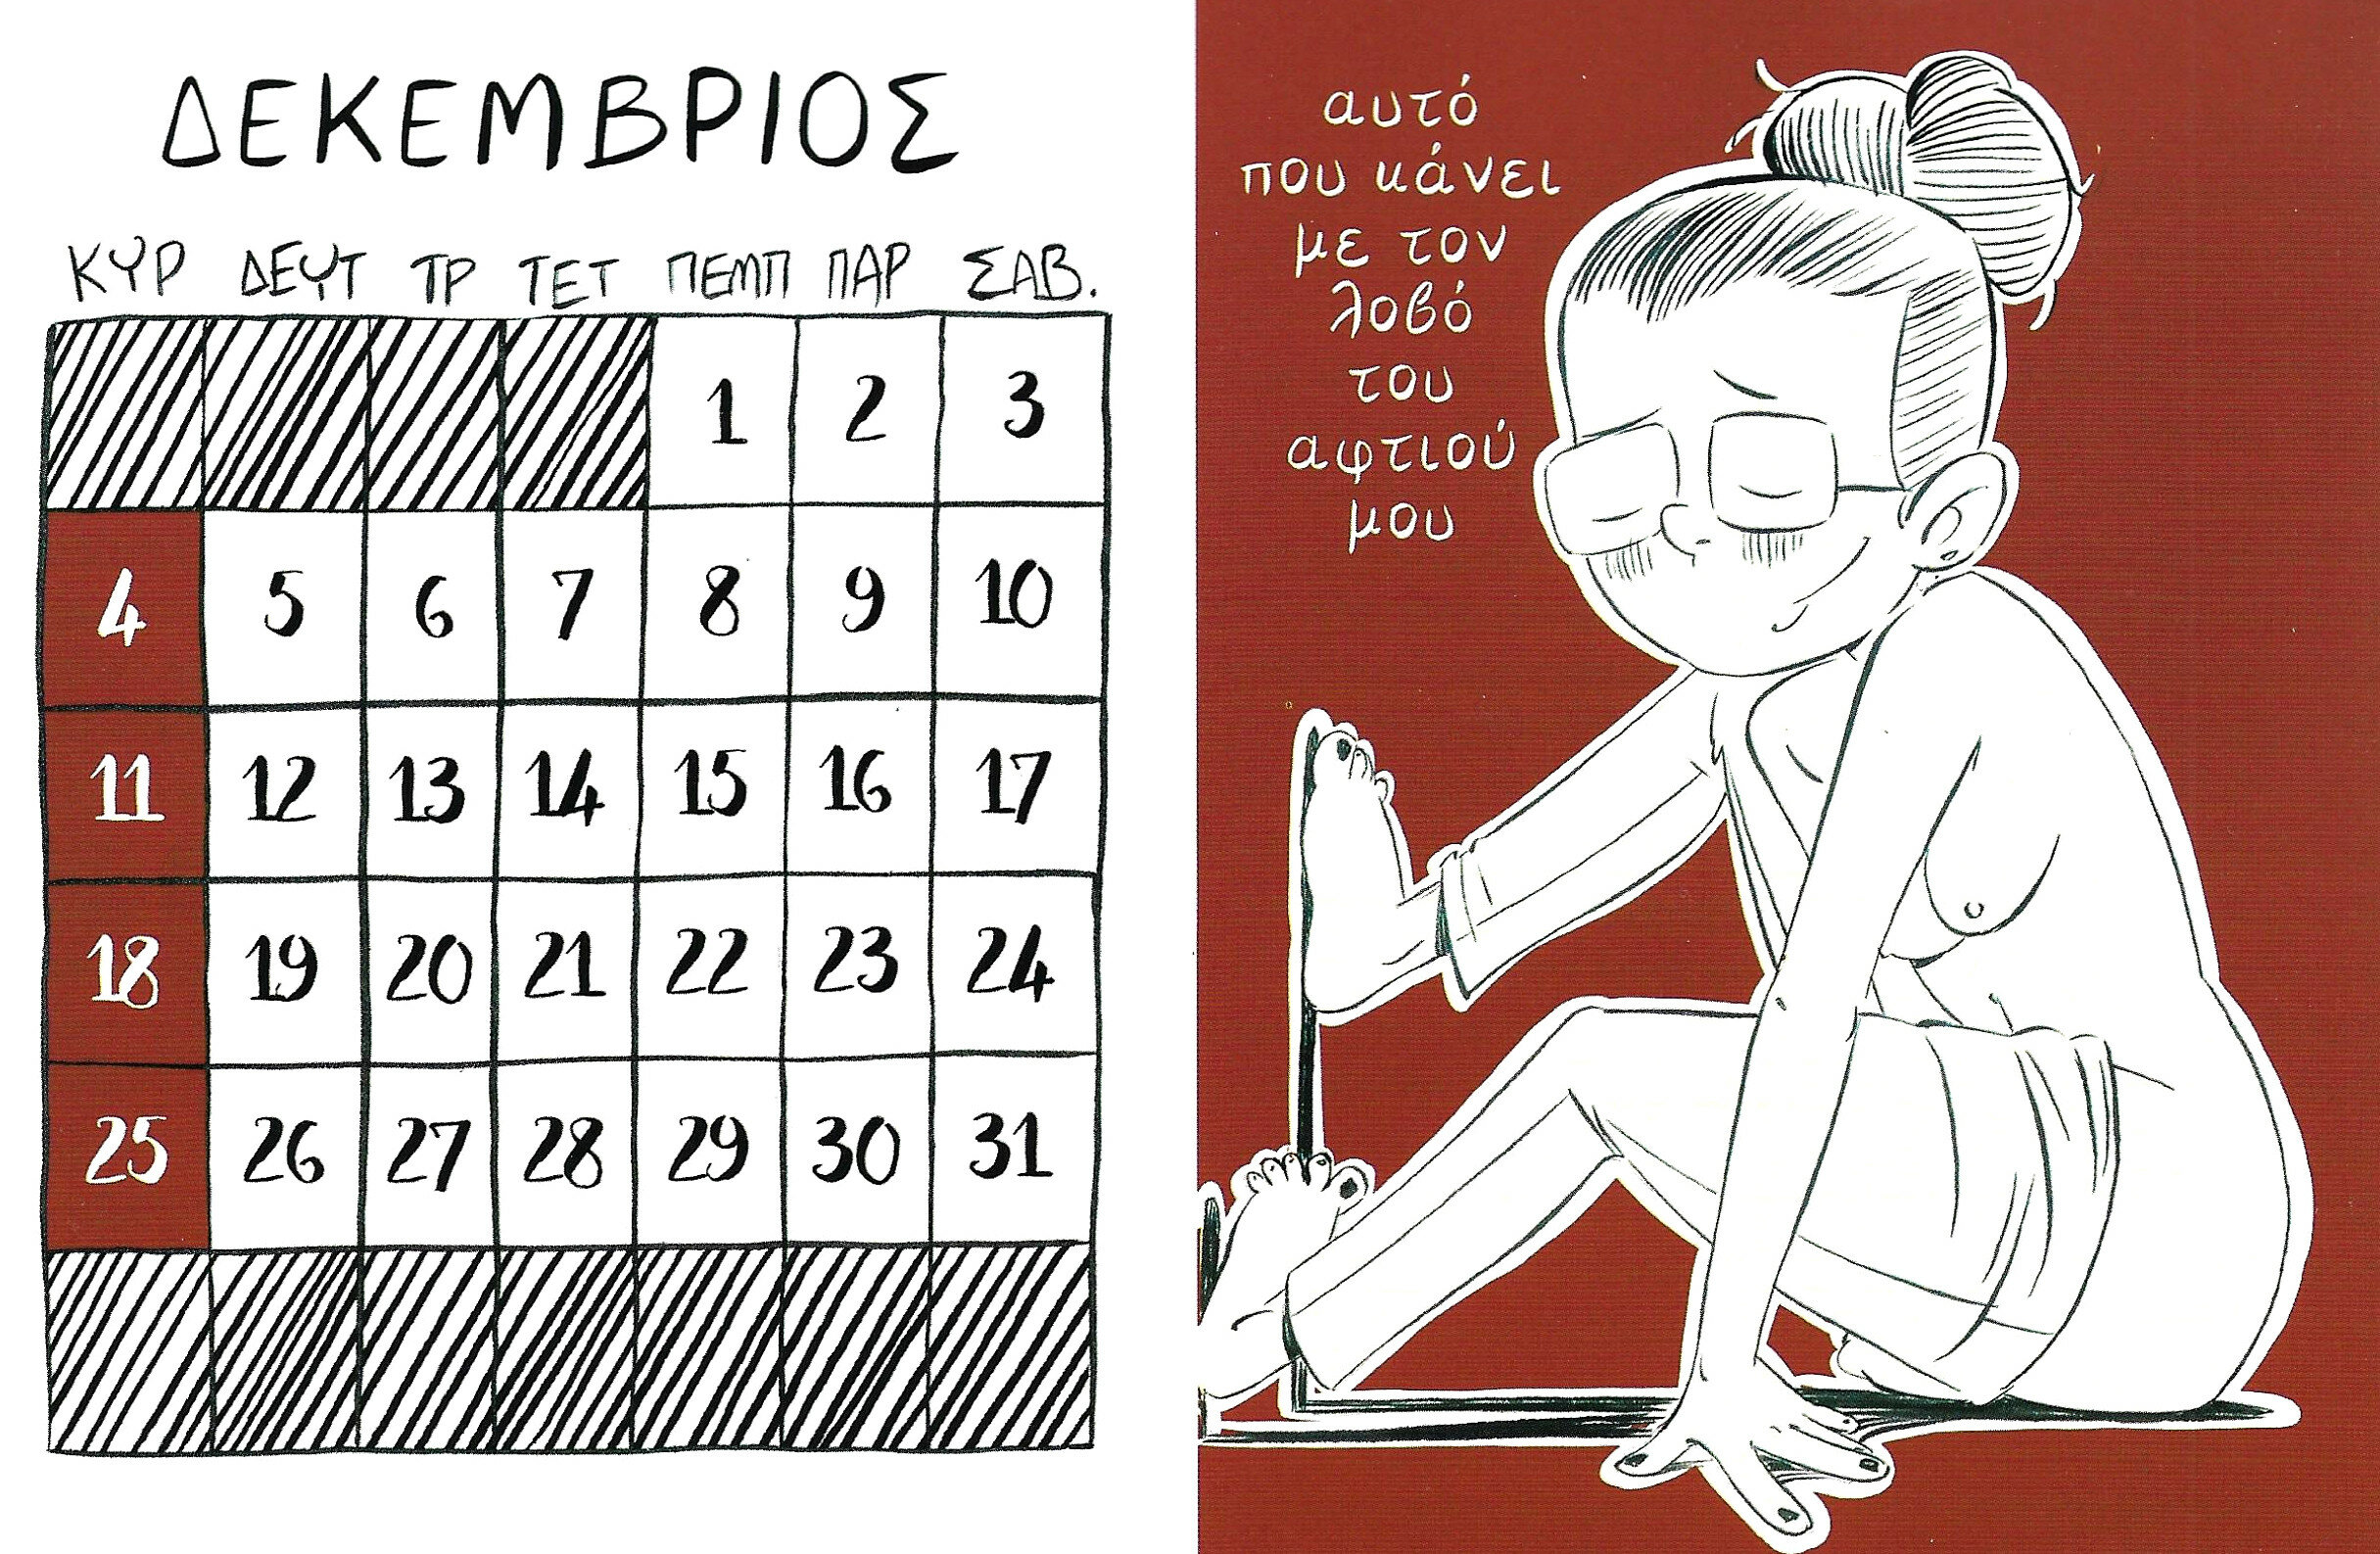 ΔΕΚΕΜΒΡΙΟΣ
ΚΥΡ ΔΕΥΤ ΤΡ ΤΕΤ ΠΕΜΠ ΠΑΡ ΣΑΒ.
1 2 3
4 5 6 7 8 9 10
11 12 13 14 15 16 17
18 19 20 21 22 23 24
25 26 27 28 29 30 31
αυτό
που κάνει
με τον
λοβό
του
αφτιού
μου